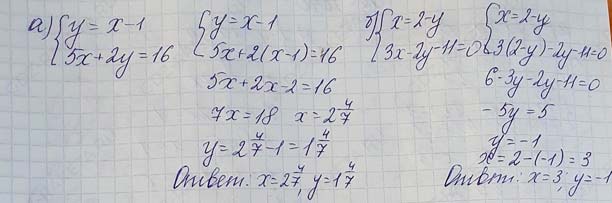 а) { y = x - 1    { y = x - 1
{ 5x + 2y = 16    { 5x + 2(x - 1) = 16
5x + 2x - 2 = 16
7x = 18    x = 2 4/7
y = 2 4/7 - 1 = 1 4/7
Ответ: x = 2 4/7, y = 1 4/7
б) { x = 2 - y    { x = 2 - y
{ 3x - 2y - 11 = 0    { 3(2 - y) - 2y - 11 = 0
6 - 3y - 2y - 11 = 0
- 5y = 5
y = -1
x = 2 - (-1) = 3
Ответ: x = 3; y = -1